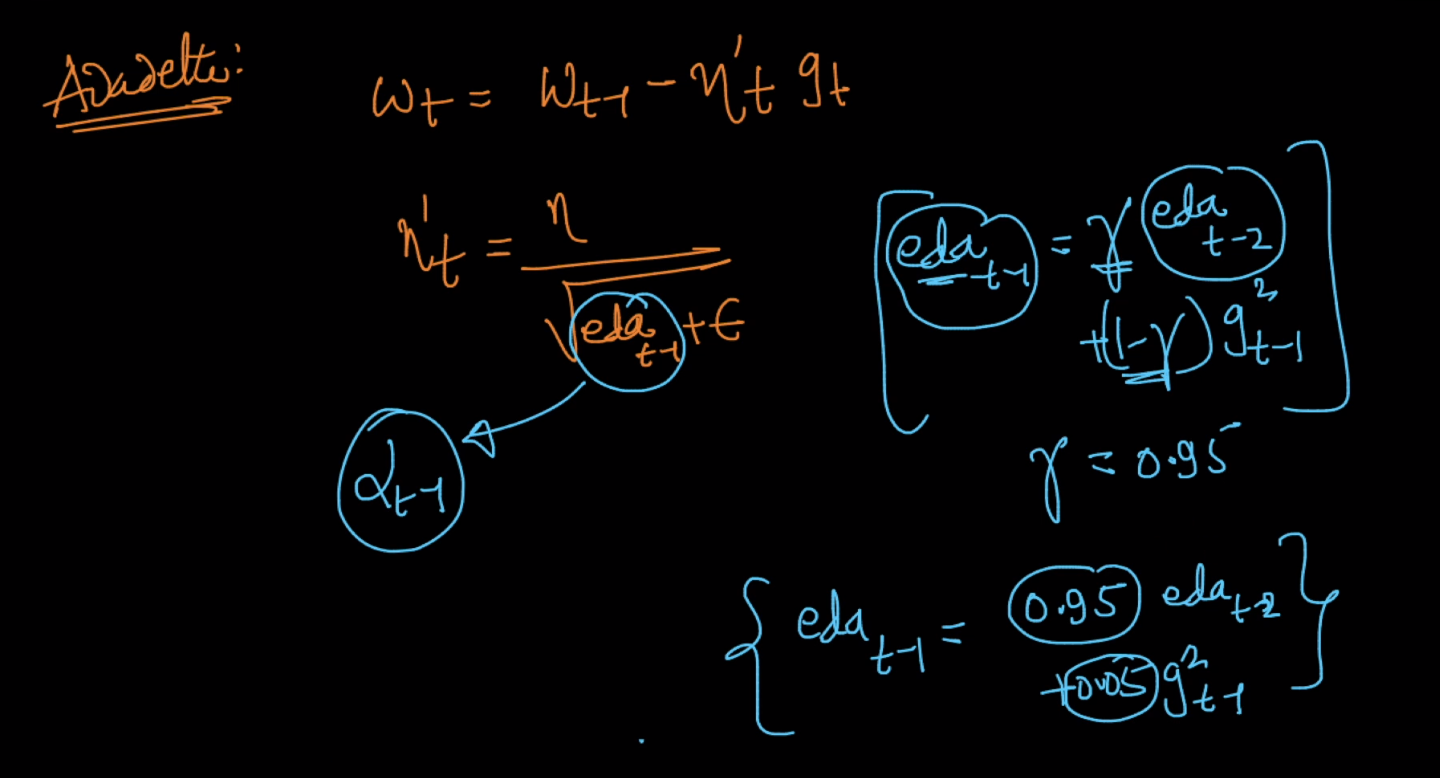 Adadelta:
w_t = w_{t-1} - η'_t g_t
η'_t = η / √(eda_{t-1} + ϵ)
α_{t-1}
[eda_{t-1} = γ eda_{t-2}
+(1-γ) g²_{t-1}]
γ = 0.95
{eda_{t-1} = 0.95 eda_{t-2}
+0.05 g²_{t-1}}